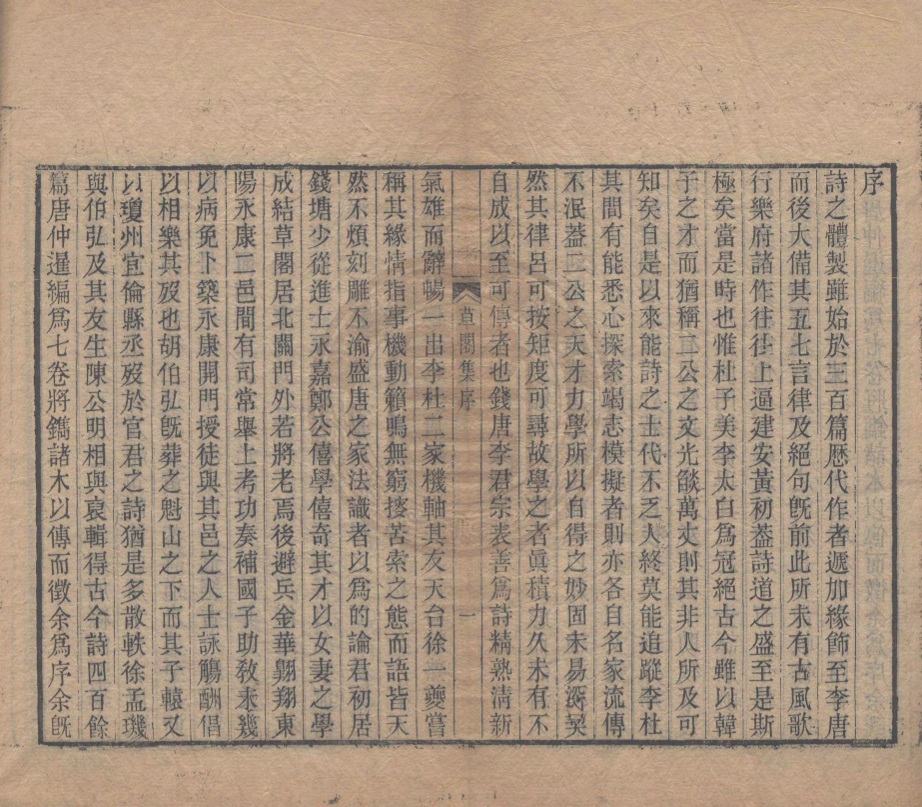 序
詩之體製雖始於三百篇歷代作者遞加緣飾至李唐
而後大備其五七言律及絕句旣前此所未有古風歌
行樂府諸作往往上逼建安黃初葢詩道之盛至是斯
極矣當是時也惟杜子美李太白爲冠絕古今雖以韓
子之才而猶稱二公之文光燄萬丈則其非人所及可
知矣自是以來能詩之士代不乏人終莫能追蹤李杜
其間有能悉心探索竭志模擬者則亦各自名家流傳
不泯葢二公之天才力學所以自得之妙固未易深契
然其律呂可按矩度可尋故學之者眞積力久未有不
自成以至可傳者也錢唐李君宗表善爲詩精熟淸新
草閣集序 一
氣雄而辭暢一出李杜二家機軸其友天台徐一夔嘗
稱其緣情指事機動籟鳴無窮搜苦索之態而語皆天
然不煩刻雕不渝盛唐之家法識者以爲的論君初居
錢塘少從進士永嘉鄭公僖學僖奇其才以女妻之學
成結草閣居北關門外若將老焉後避兵金華翺翔東
陽永康二邑間有司常舉上考功奏補國子助敎未幾
以病免卜築永康開門授徒與其邑之人士詠觴酬倡
以相樂其歿也胡伯弘旣葬之魁山之下而其子轅又
以瓊州宜倫縣丞歿於官君之詩猶是多散軼徐孟璣
與伯弘及其友生陳公明相與裒輯得古今詩四百餘
篇唐仲暹編爲七卷將鐫諸木以傳而徵余爲序余旣